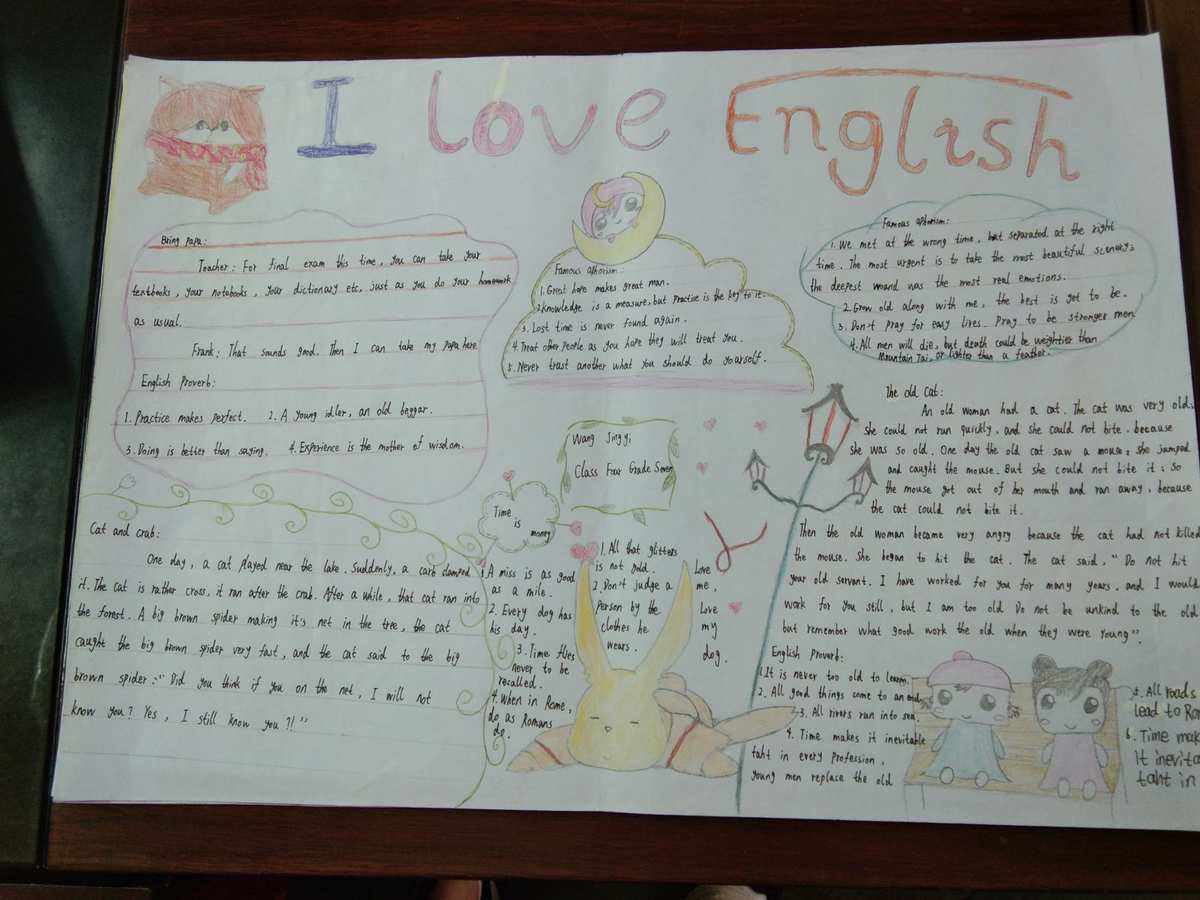 I love English
Bring Papa:
Teacher: For final exam this time, you can take your
textbooks, your notebooks, your dictionary etc. just as you do your homework
as usual.
Frank: That sounds good. Then I can take my Papa here
English Proverb:
1. Practice makes perfect. 2. A young idler, an old beggar.
3. Doing is better than saying. 4. Experience is the mother of wisdom.
Famous aphorism:
1. Great hope makes great man.
2. knowledge is a measure, but Practice is the key to it.
3. Lost time is never found again.
4. Treat other people as you hope they will treat you.
5. Never trust another what you should do yourself.
Famous aphorism:
1. We met at the wrong time, but separated at the right
time. The most urgent is to take the most beautiful scenery;
the deepest wound was the most real emotions.
2. Grow old along with me, the best is yet to be.
3. Don't pray for easy lives. Pray to be stronger men.
4. All men will die, but death could be weightier than
Mountain Tai, or lighter than a feather.
Wang Jing yi
Class Four Grade Seven
The old Cat:
An old woman had a cat. The cat was very old;
she could not run quickly, and she could not bite. because
she was so old. One day the old cat saw a mouse; she jumped
and caught the mouse. But she could not bite it; so
the mouse got out of her mouth and ran away, because
the cat could not bite it.
Then the old woman became very angry because the cat had not killed
the mouse. She began to hit the cat. The cat said, "Do not hit
your old servant. I have worked for you for many years. and I would
work for you still, but I am too old. Do not be unkind to the old
but remember what good work the old when they were young".
Cat and crab:
One day, a cat played near the lake. Suddenly, a carb clamped
it. The cat is rather cross, it ran after the crab. After a while, that cat ran into
the forest. A big brown spider making it's net in the tree, the cat
caught the big brown spider very fast, and the cat said to the big
brown spider: "Did you think if you on the net, I will not
know you? Yes, I still know you?!"
Time
is
money
1. A miss is as good
as a mile.
2. Every dog has
his day.
3. Time flies
never to be
recalled.
4. When in Rome,
do as Romans
do.
1. All that glitters
is not gold.
2. Don't judge a
person by the
clothes he
wears.
Love
me,
Love
my
dog.
English Proverb:
1. It is never too old to learn.
2. All good things come to an end.
3. All rivers run into sea.
4. Time makes it inevitable
taht in every profession,
young men replace the old
5. All roads
lead to
6. Time
it
taht in